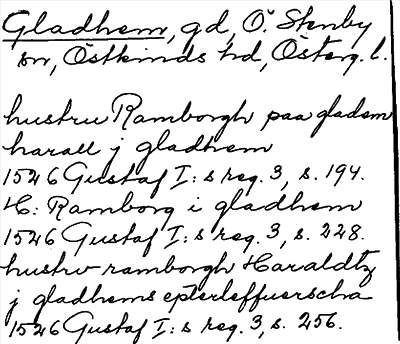 Gladhem, gd, Ö. Stenby
sn, Östkinds hd, Österg. l.
hustru Ramborgh paa gladem
harall j gladhem
1546 Gustaf I:s reg. 3, s. 194.
H: Ramborg i gladhem
1546 Gustaf I:s reg. 3, s. 228.
hustrv ramborgh Haraldtz
j gladhems epterleffuerscha
1546 Gustaf I:s reg. 3, s. 256.